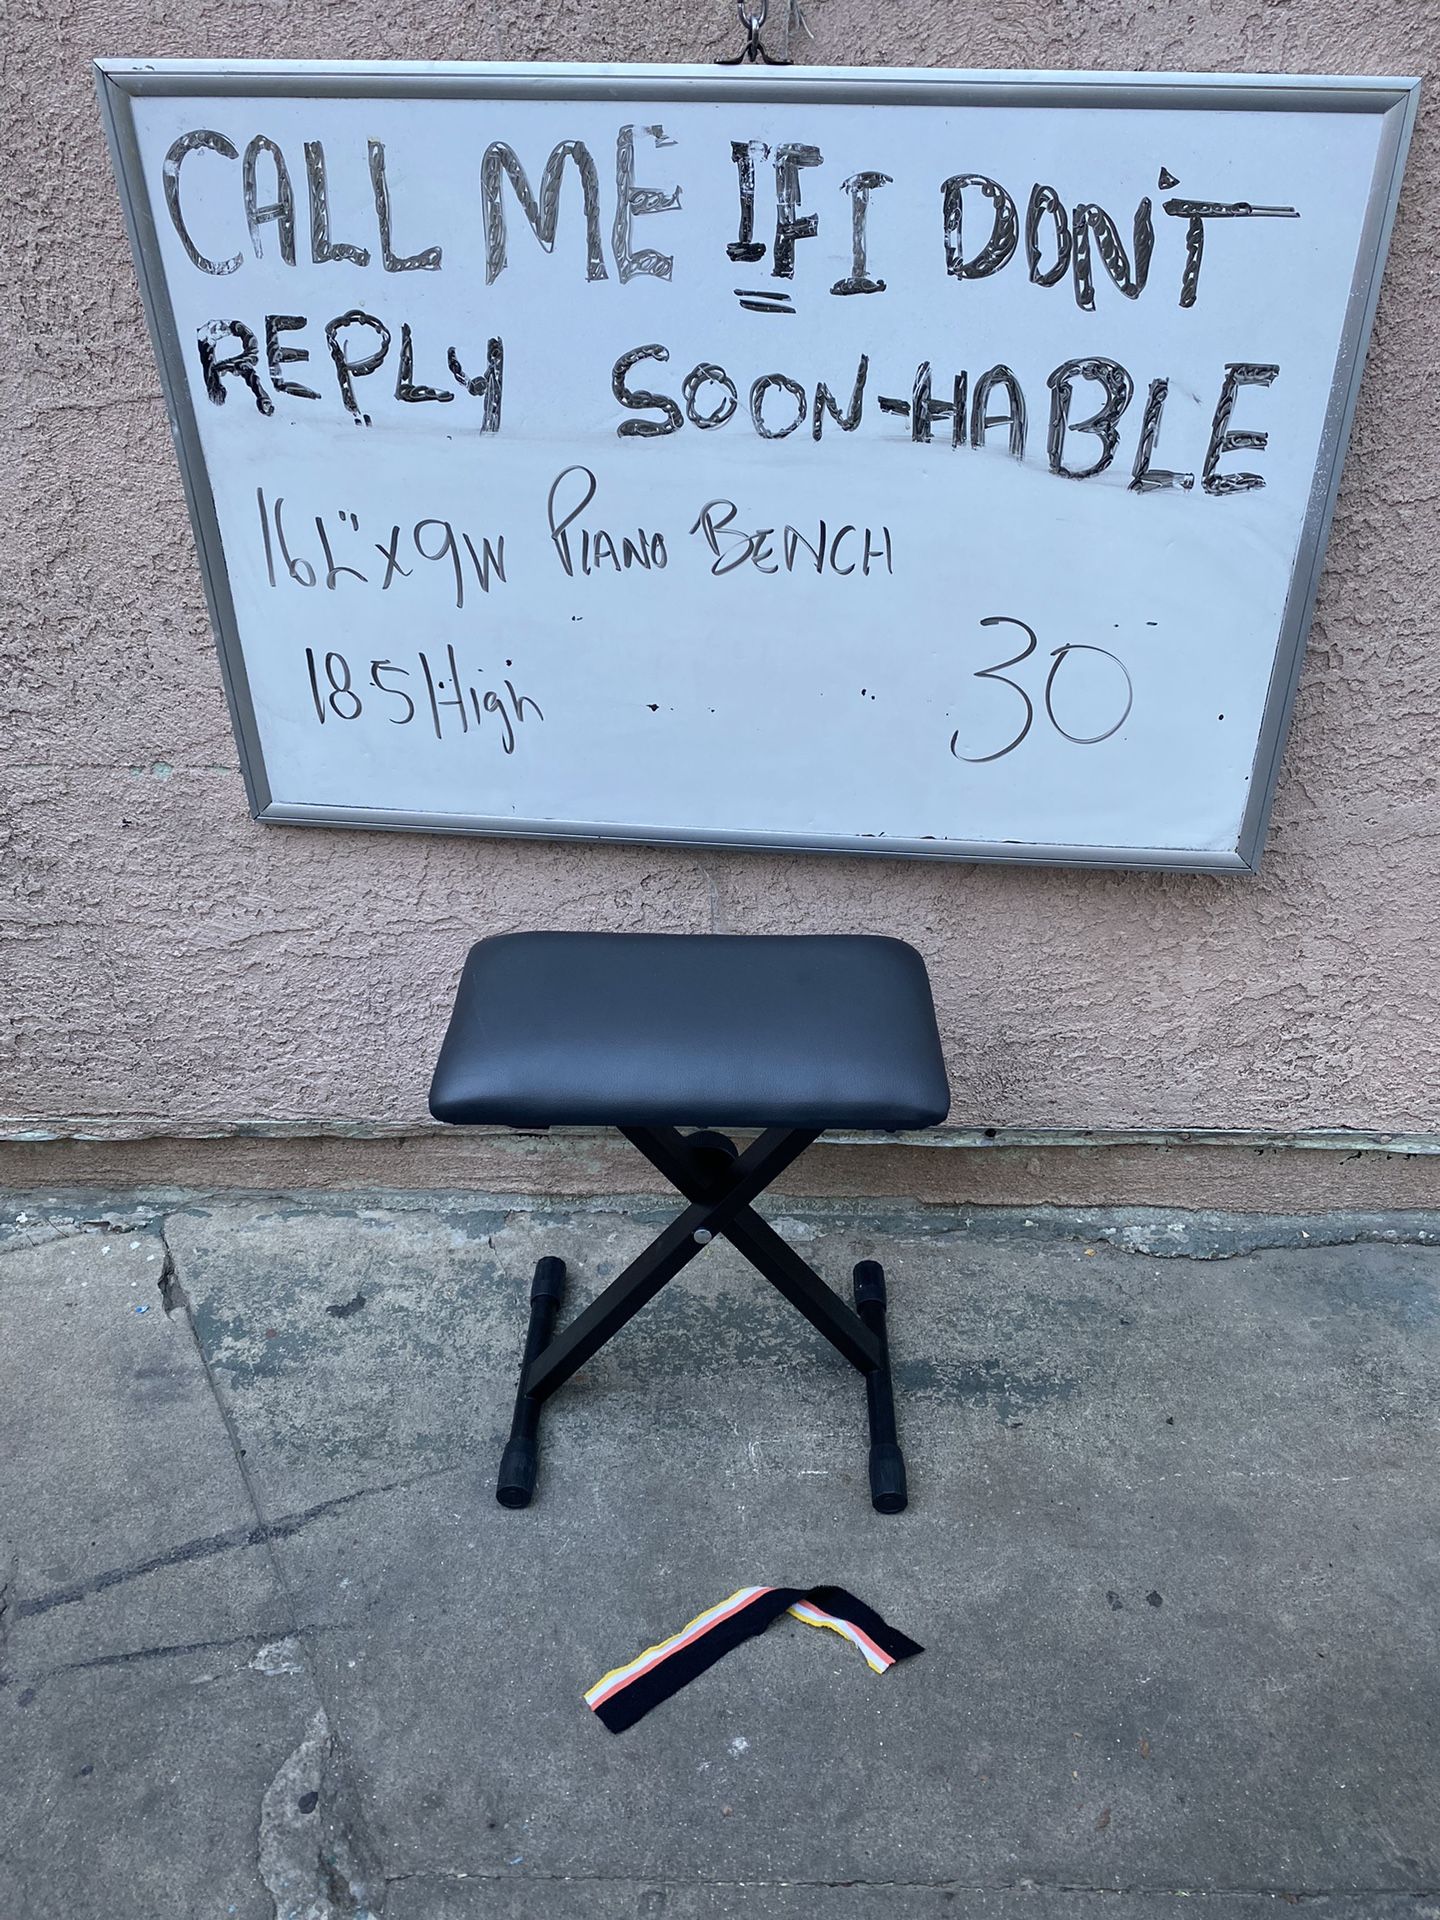 CALL ME IF I DON'T
REPLY SOON-HABLE
16L"X9W PIANO BENCH
18.5 High 30